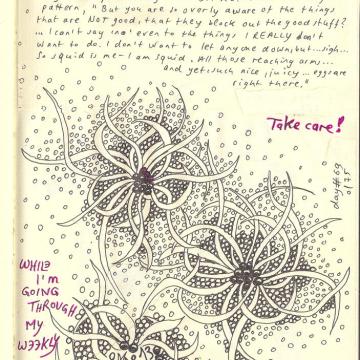 pattern, " But you are so overly aware of the things
that are NOT good, that they block out the good stuff?
... I can't say 'no' even to the things I REALLY don't
want to do. I don't want to let anyone down, but...sigh...
So squid is me - I am squid. All those reaching arms...
and yet, such nice, juicy... eggs are
right there."
Take care!
day#69
175
WHILE
I'M
GOING
THROUGH
MY
WEEKLY